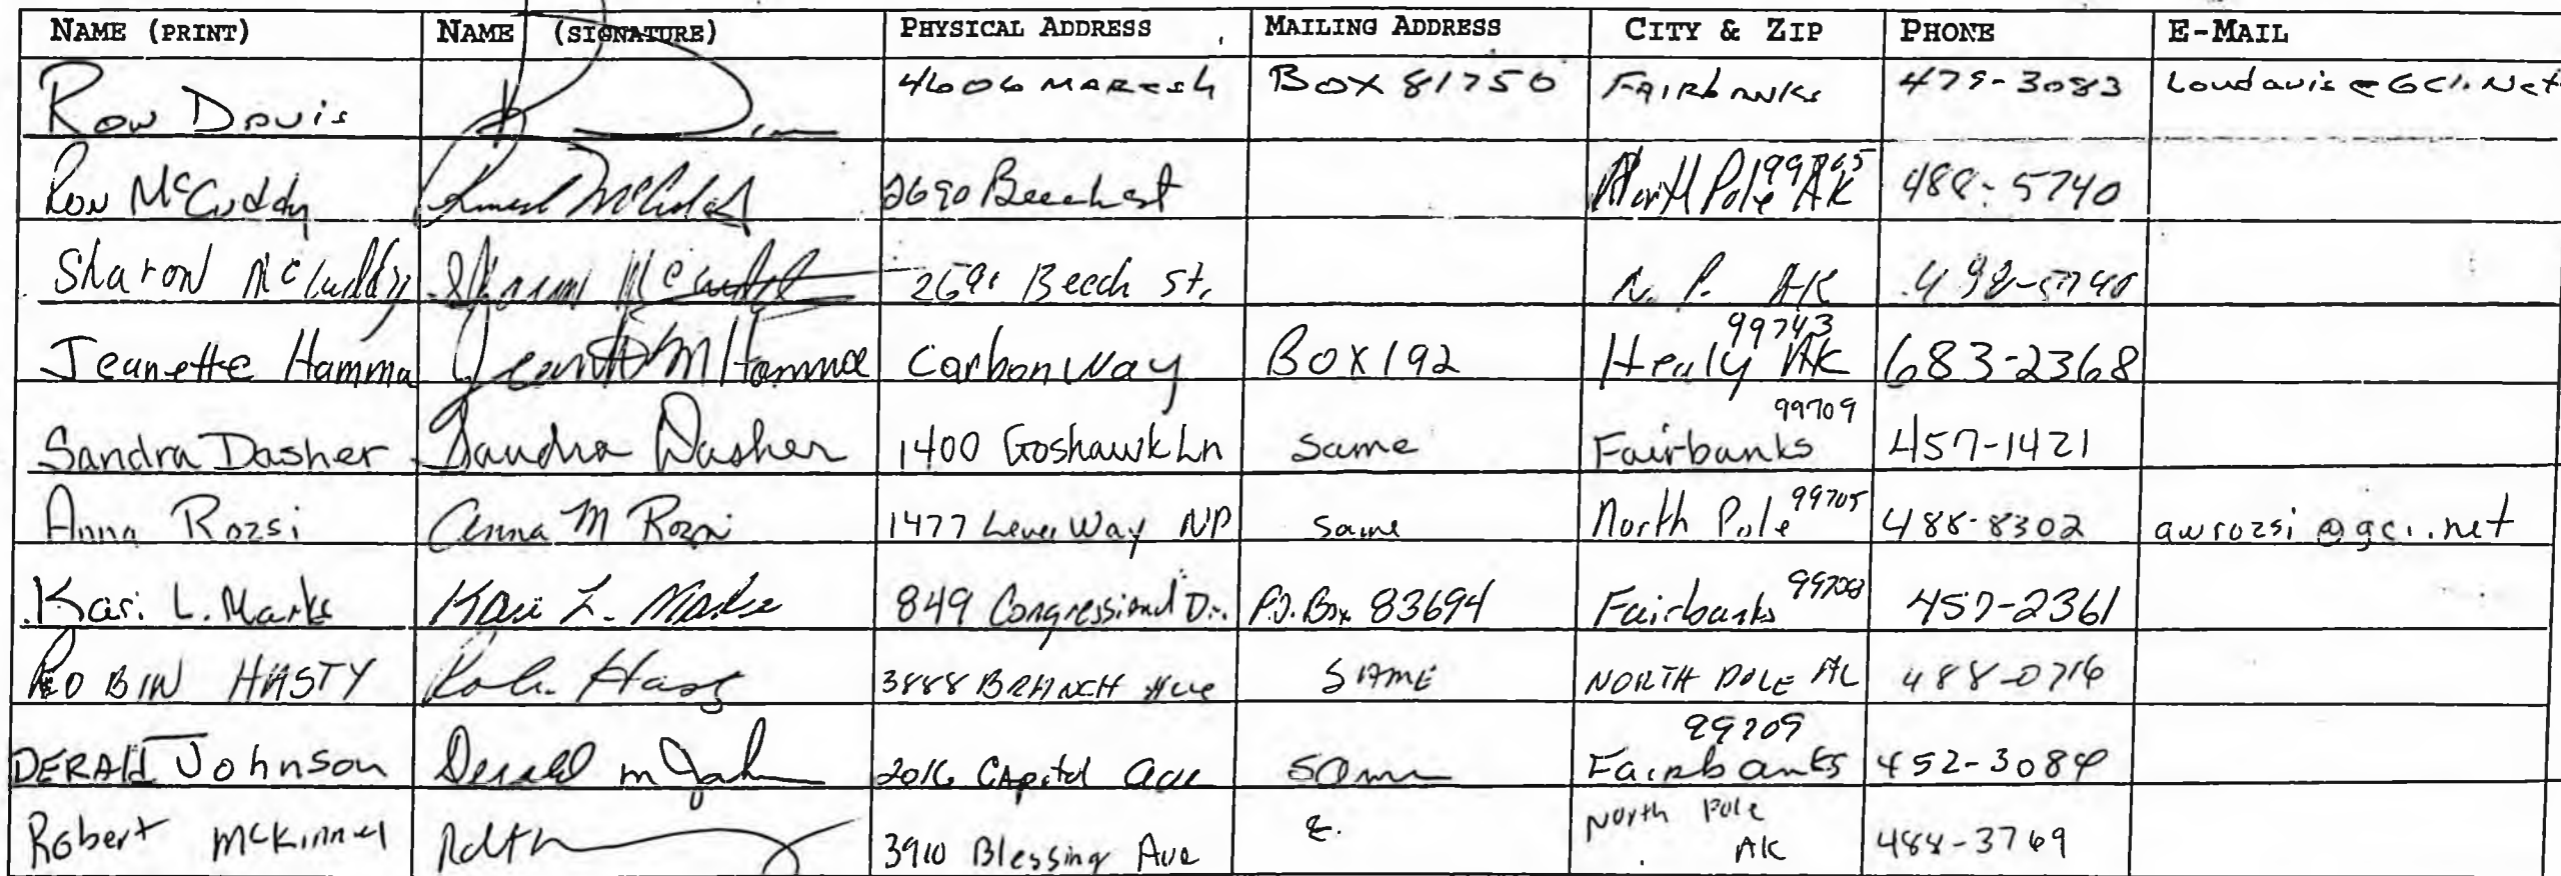 NAME (PRINT) NAME (SIGNATURE) PHYSICAL ADDRESS MAILING ADDRESS CITY & ZIP PHONE E-MAIL
Ron Davis 4606 Box 81750 Fairbanks 479-3083 Loudavis@GCI.Net
Ron McCuddy 2690 Beech st North Pole AK 99705 488-5740
Sharon McCuddy Sharon 2690 Beech St. N. P. AK
Jeanette Hamma Jeanette M Hamma Carbon Way Box 192 Healy AK 99743 683-2368
Sandra Dasher Sandra Dasher 1400 Goshawk Ln Same Fairbanks 99709 457-1421
Anna Rozsi Anna M Rozsi 1477 Way NP Same North Pole 99705 488-8302 awrozsi@gci.net
Kari L. Marks Kari L. Marks 849 Congressional Dr. P.O. Box 83694 Fairbanks 99708 457-2361
ROBIN HASTY 3888 BRANCH Ave SAME NORTH POLE 488-0716
DERALD Johnson Derald m 2016 Capitol Ave Same Fairbanks 99709 452-3084
Robert McKinnel 3910 Blessing Ave North Pole AK 488-3769